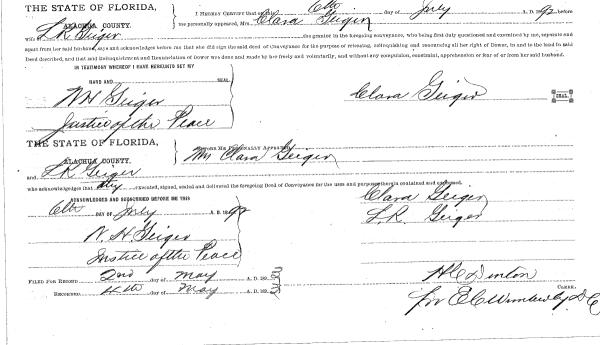 THE STATE OF FLORIDA,
ALACHUA COUNTY.
I HEREBY CERTIFY that on this 6th day of July A. D. 1892, before
me personally appeared, Mrs. Clara Geiger
wife L R Geiger the grantor in the foregoing conveyance, who being first duly questioned and examined by me, separate and
apart from her said husband, says and acknowledges before me that she did sign the said deed of Conveyance for the purpose of releasing, relinquishing and renouncing all her right of Dower, in and to the land in said
Deed described, and that said Relinquishment and Renunciation of Dower was done and made by her freely and voluntarily, and without any compulsion, constraint, apprehension or fear of or from her said husband.
IN TESTIMONY WHEREOF I HAVE HEREUNTO SET MY
HAND AND SEAL
W H Geiger
Justice of the Peace
Clara Geiger
SEAL
THE STATE OF FLORIDA,
ALACHUA COUNTY.
BEFORE ME PERSONALLY APPEARED
Mrs Clara Geiger
and L R Geiger
who acknowledges that they executed, signed, sealed and delivered the foregoing Deed of Conveyance for the uses and purposes therein contained and expressed.
ACKNOWLEDGED AND SUBSCRIBED BEFORE ME THIS
6th DAY OF July A. D. 1892
W. H Geiger
Justice of the Peace
Clara Geiger
L. R. Geiger
FILED FOR RECORD 2nd day of May A. D. 189
RECORDED 4th day of May A. D. 189
H C Denton
CLERK.
for E C Wimberly D C